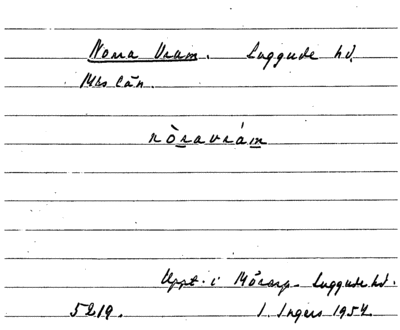 Norra Vram. Luggude hd.
Mlös län.
nòravrám
Uppt. i Mörarp Luggude hd.
5219. I. Ingers 1954.